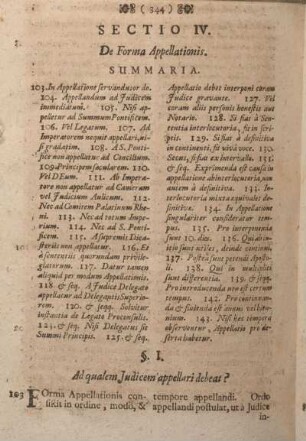 ( 344 )
SECTIO IV.
De Forma Appellationis.
SUMMARIA.
103. In Appellatione servandus or do.
104. Appellandum ad Judicem
immediatum. 105. Nisi ap-
pelletur ad Summum Pontificem.
106. Vel Legatum. 107. Ad
Imperatorem nequit appellari, ni-
si gradatim. 108. A S. Ponti-
fice non appellatur ad Concilium.
109. A Principe seculari. 110.
Vel DEum. 111. Ab Impera-
tore non appellatur ad Cameram
vel Judicium Aulicum. 112.
Nec ad Comitem Palatinum Rhe-
ni. 113. Nec ad totum Impe-
rium. 114. Nec ad S. Ponti-
ficem. 115. A supremis Dica-
steriis non appellatur. 116. Et
à sententiis quorundam privile-
giatorum. 117. Datur tamen
aliquid per modum Appellationis.
118. & seq. A Judice Delegato
appellatur ad Delegantis Superio-
rem. 120. & seq. Solvitur
instantia de Legato Proconsulis.
123. & seq. Nisi Delegatus sit
Summi Principis. 125. & seq.
Appellatio debet interponi coram
Judice gravante. 127. Vel
coram aliis personis honestis cum
Notario. 128. Si fiat à Sen-
tentia interlocutoria, fit in scri-
ptis. 129. Si fiat à definitiva
in continenti, fit vivâ voce. 130.
Secus, si fiat ex intervallo. 131.
& seq. Exprimenda est causa in
appellatione ab interlocutoria, non
autem à definitiva. 133. In-
terlocutoria mixta æquivalet de-
finitivæ. 134. In Appellatione
singulariter consideratur tem-
pus. 135. Pro interponenda
sunt 10. dies. 136. Qui a
tio sunt utiles, deinde continui.
137. Postea sunt petendi Aposto-
li. 138. Qui in multiplici
sunt differentia. 139. & seq.
Pro introducenda non est certum
tempus. 142. Prosequenda
& finienda est annus vel bien-
nium. 143. Nisi hæc tempora
observentur, Appellatio pro de-
serta habetur.
§. I.
Ad qualem Judicem appellari debeat?
103 FOrma Appellationis con-
sistit in ordine, modo, &
tempore appellandi. Ordo
appellandi postulat, ut à Judice
in-